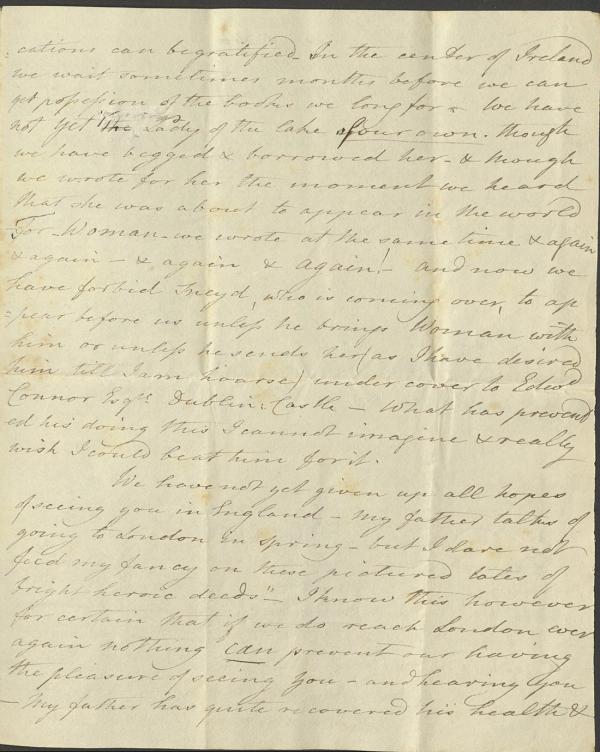 :cations can be gratified – In the center of Ireland
we wait sometimes months before we can
get possession of the books we long for & we have
not yet the Lady of the lake of our own. though
we have begged & borrowed her – & though
we wrote for her the moment we heard
that she was about to appear in the world
For – Woman – we wrote at the same time & again
& again – & again & again! – and now we
have forbid Sneyd, who is coming over, to ap
=pear before us unless he brings Woman with
him or unless he sends her (as I have desired
him till I am hoarse) under cover to Edwd
Connor Esqr. Dublin Castle – What has prevent
ed his doing this I cannot imagine & really
wish I could beat him for it.
We have not yet given up all hopes
of seeing you in England – My father talks of
going to London in spring – but I dare not
feed my fancy on these pictured tales of
bright heroic deeds" – I know this however
for certain that if we do reach London ever
again nothing can prevent our having
the pleasure of seeing you – and hearing you
– My father has quite recovered his health &